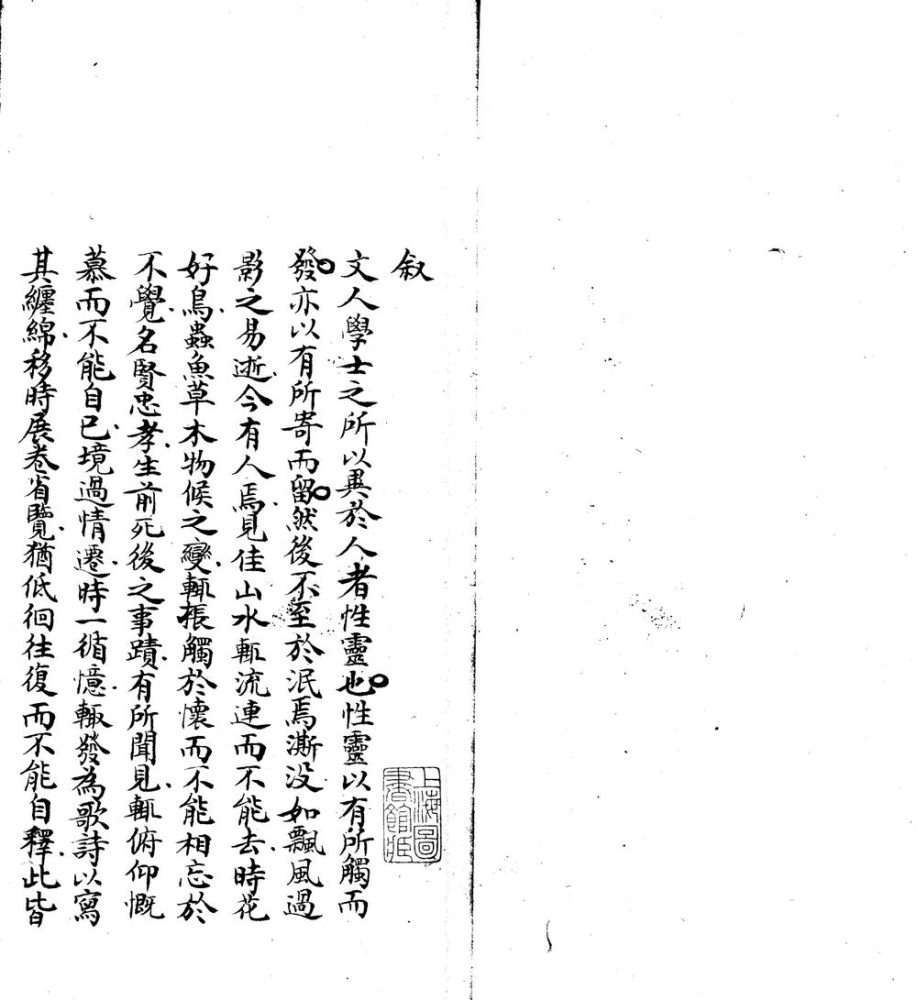 叙
文人學士之所以異於人者性靈也性靈以有所觸而
發亦以有所寄而留然後不至於泯焉澌没如飄風過
影之易逝今有人焉見佳山水輒流連而不能去時花
好鳥蟲魚草木物候之變輒棖觸於懷而不能相忘於
不覺名賢忠孝生前死後之事蹟有所聞見輒俯仰慨
慕而不能自已境過情遷時一循憶輒發為歌詩以寫
其纏綿移時展卷省覽猶低徊往復而不能自釋此皆
上海圖
書館藏